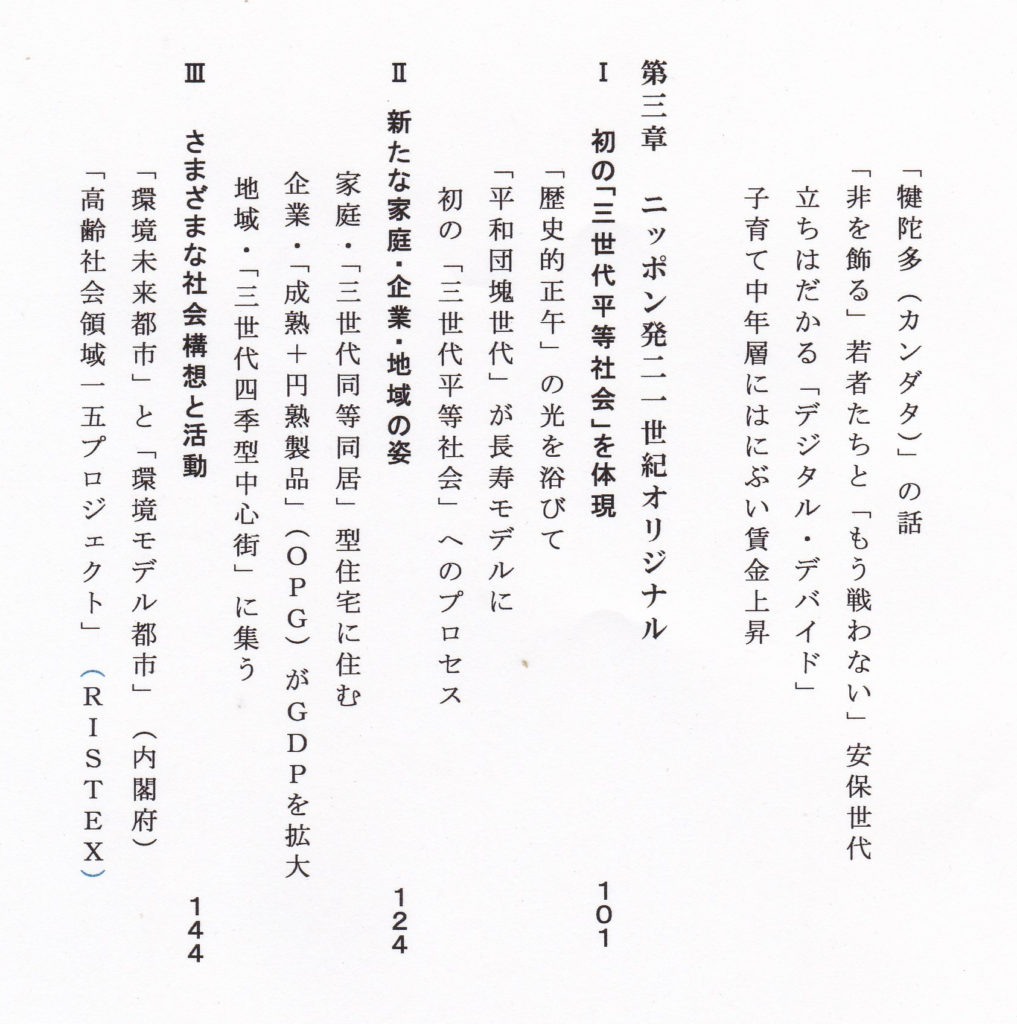 「犍陀多（カンダタ）」の話
「非を飾る」若者たちと「もう戦わない」安保世代
立ちはだかる「デジタル・デバイド」
子育て中年層にはにぶい賃金上昇
第三章　ニッポン発二一世紀オリジナル
Ⅰ　初の「三世代平等社会」を体現　101
「歴史的正午」の光を浴びて
「平和団塊世代」が長寿モデルに
初の「三世代平等社会」へのプロセス
Ⅱ　新たな家庭・企業・地域の姿　124
家庭・「三世代同等同居」型住宅に住む
企業・「成熟＋円熟製品」（OPG）がGDPを拡大
地域・「三世代四季型中心街」に集う
Ⅲ　さまざまな社会構想と活動　144
「環境未来都市」と「環境モデル都市」（内閣府）
「高齢社会領域一五プロジェクト」（RISTEX）